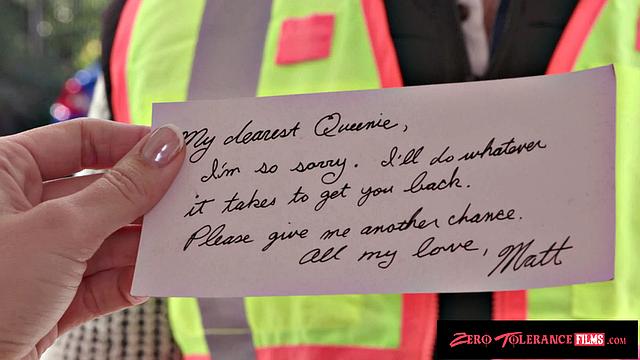 My dearest Queenie,
I'm so sorry. I'll do whatever
it takes to get you back.
Please give me another chance.
All my love, Matt
ZERO TOLERANCE FILMS .COM